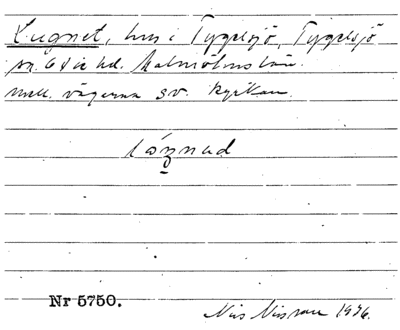 Lugnet, hus i Tygelsjö, Tygelsjö
sn. Oxie hd. Malmöhus län.
mell. vägarna sv. kyrkan.
Nr 5750.
Nils Nilsson 1936.